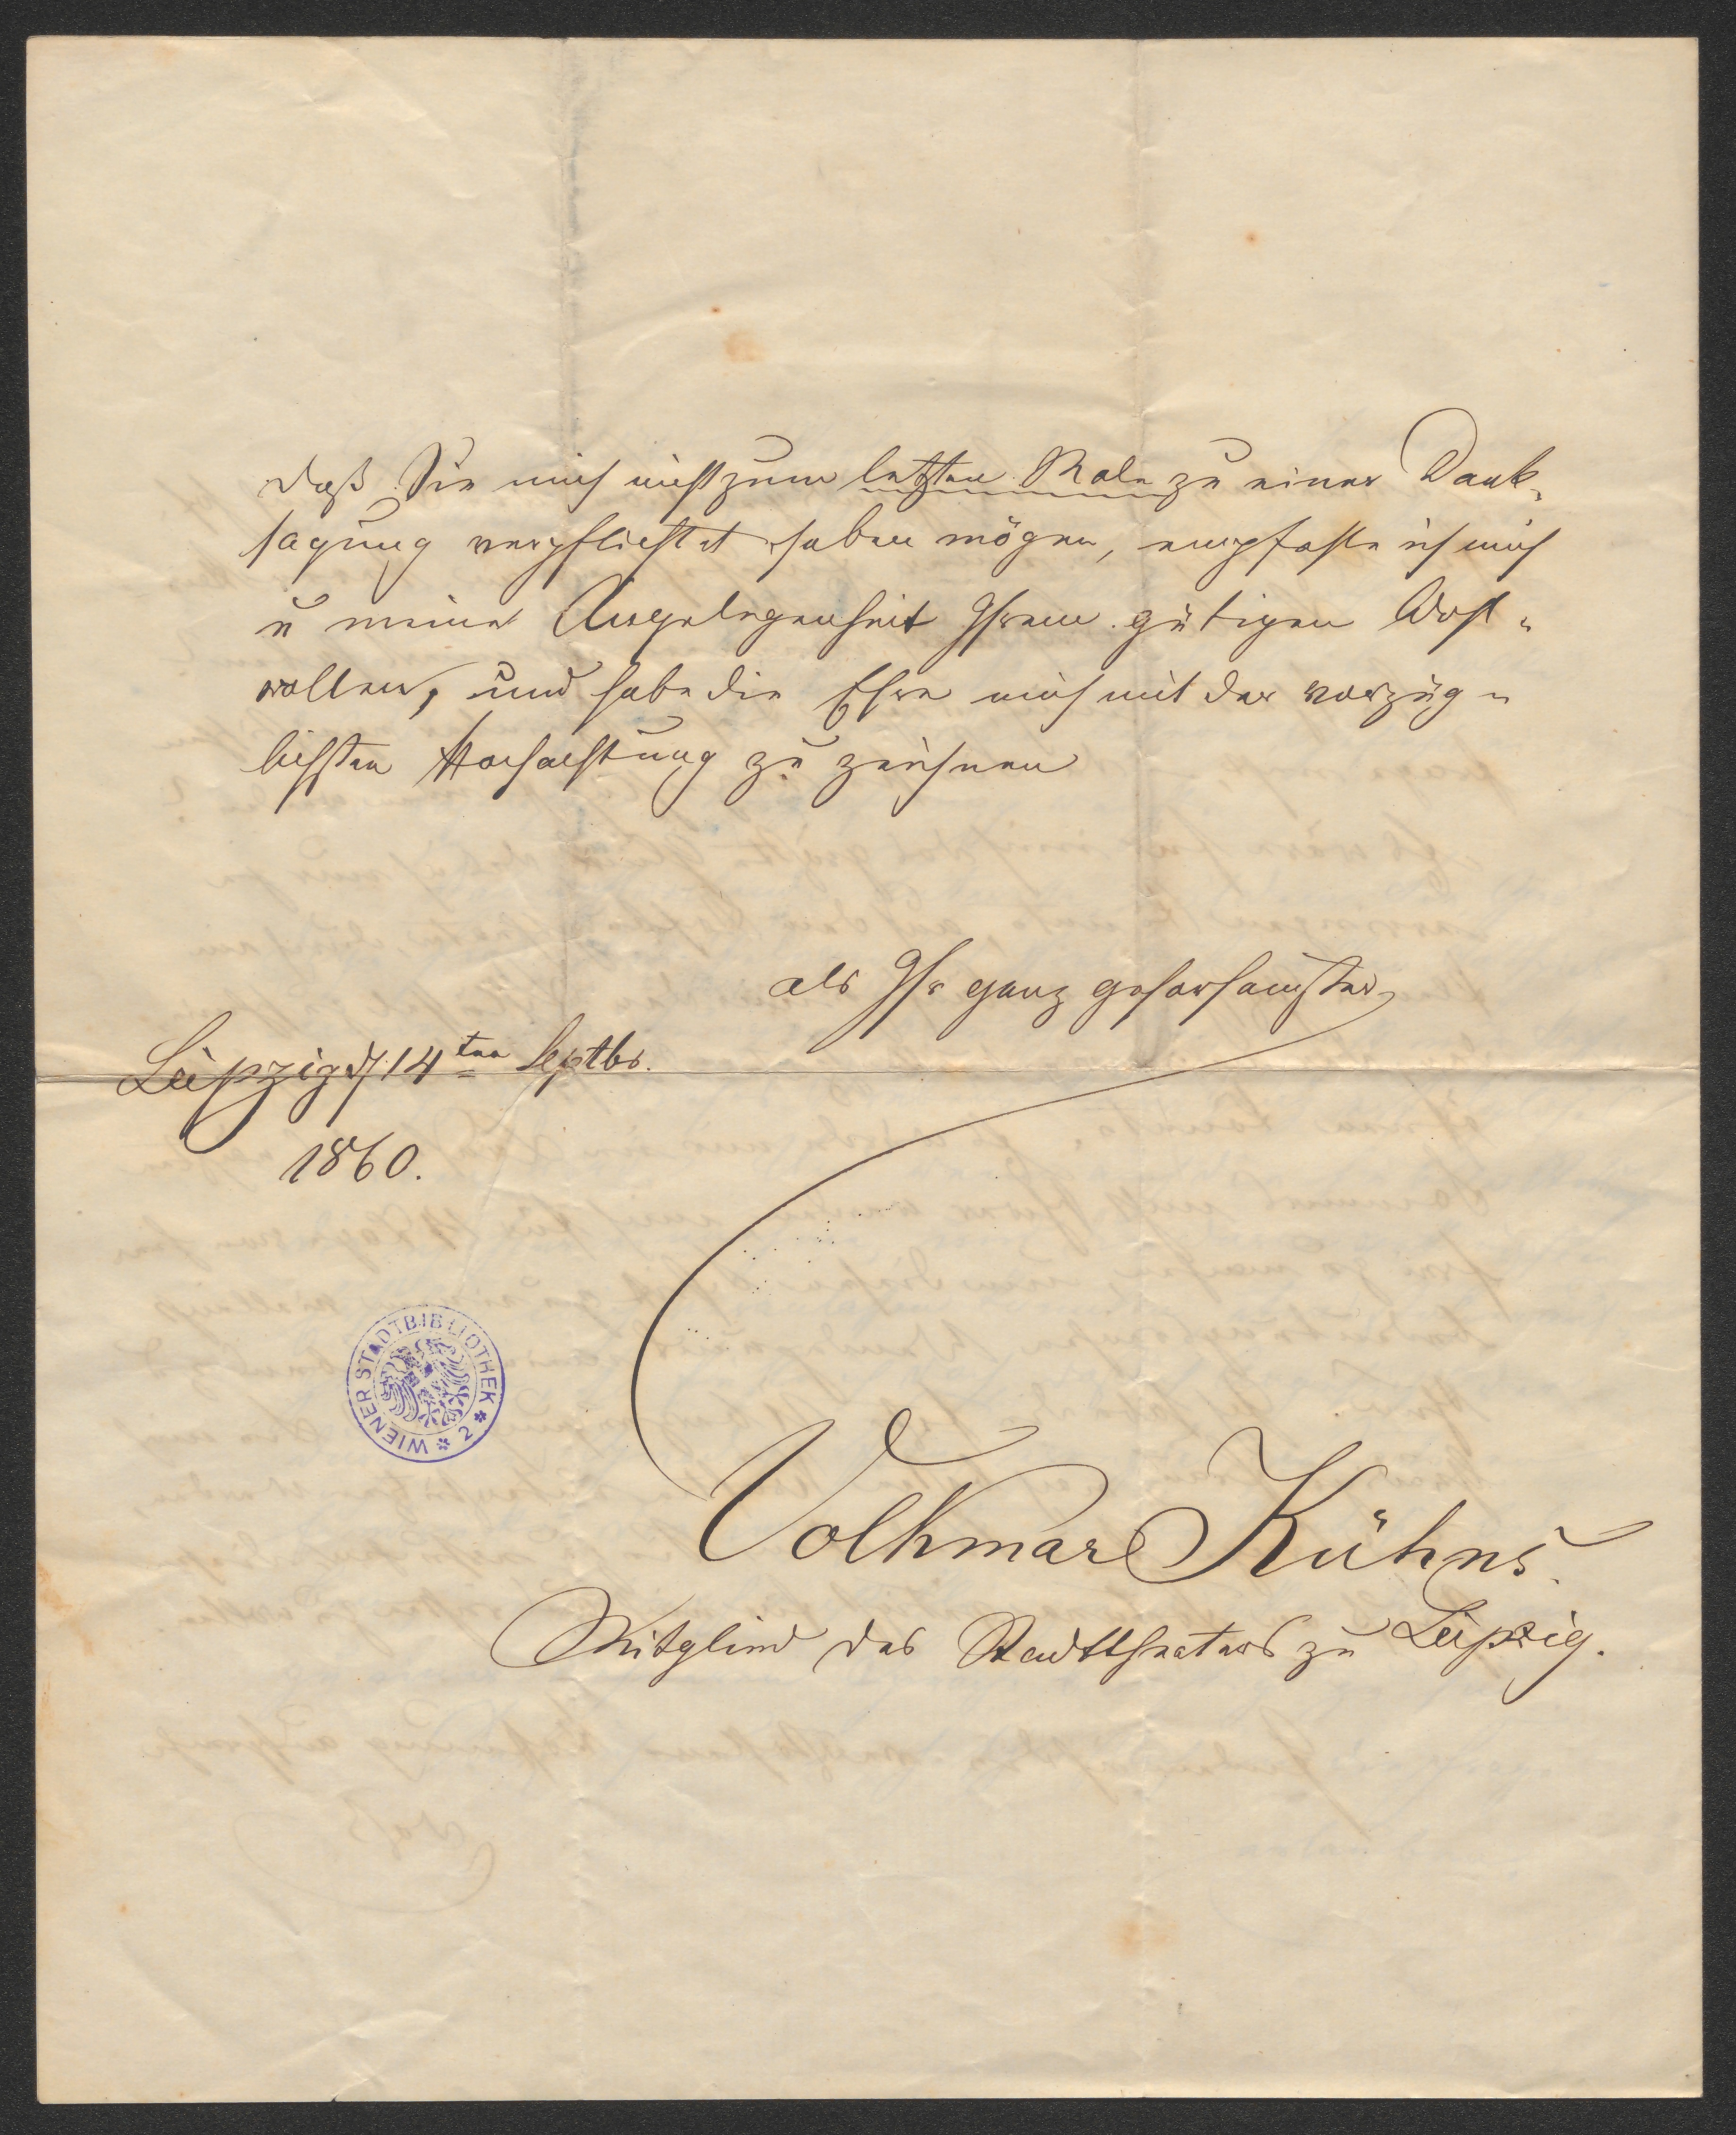 daß Sie mich nicht zum letzten Male zu einer Dank-
sagung verpflichtet haben mögen, empfehle ich mich
u meine Angelegenheit Ihrem gütigen Wohl-
wollen, und habe die Ehre mich mit der vorzüg-
lichsten Hochachtung zu zeichnen
als Ihr ganz gehorsamster
Leipzig d. 14ten Septbr.
1860.
WIENER STADTBIBLIOTHEK * 2 *
Volkmar Kühns.
Mitglied des Stadttheaters zu Leipzig.